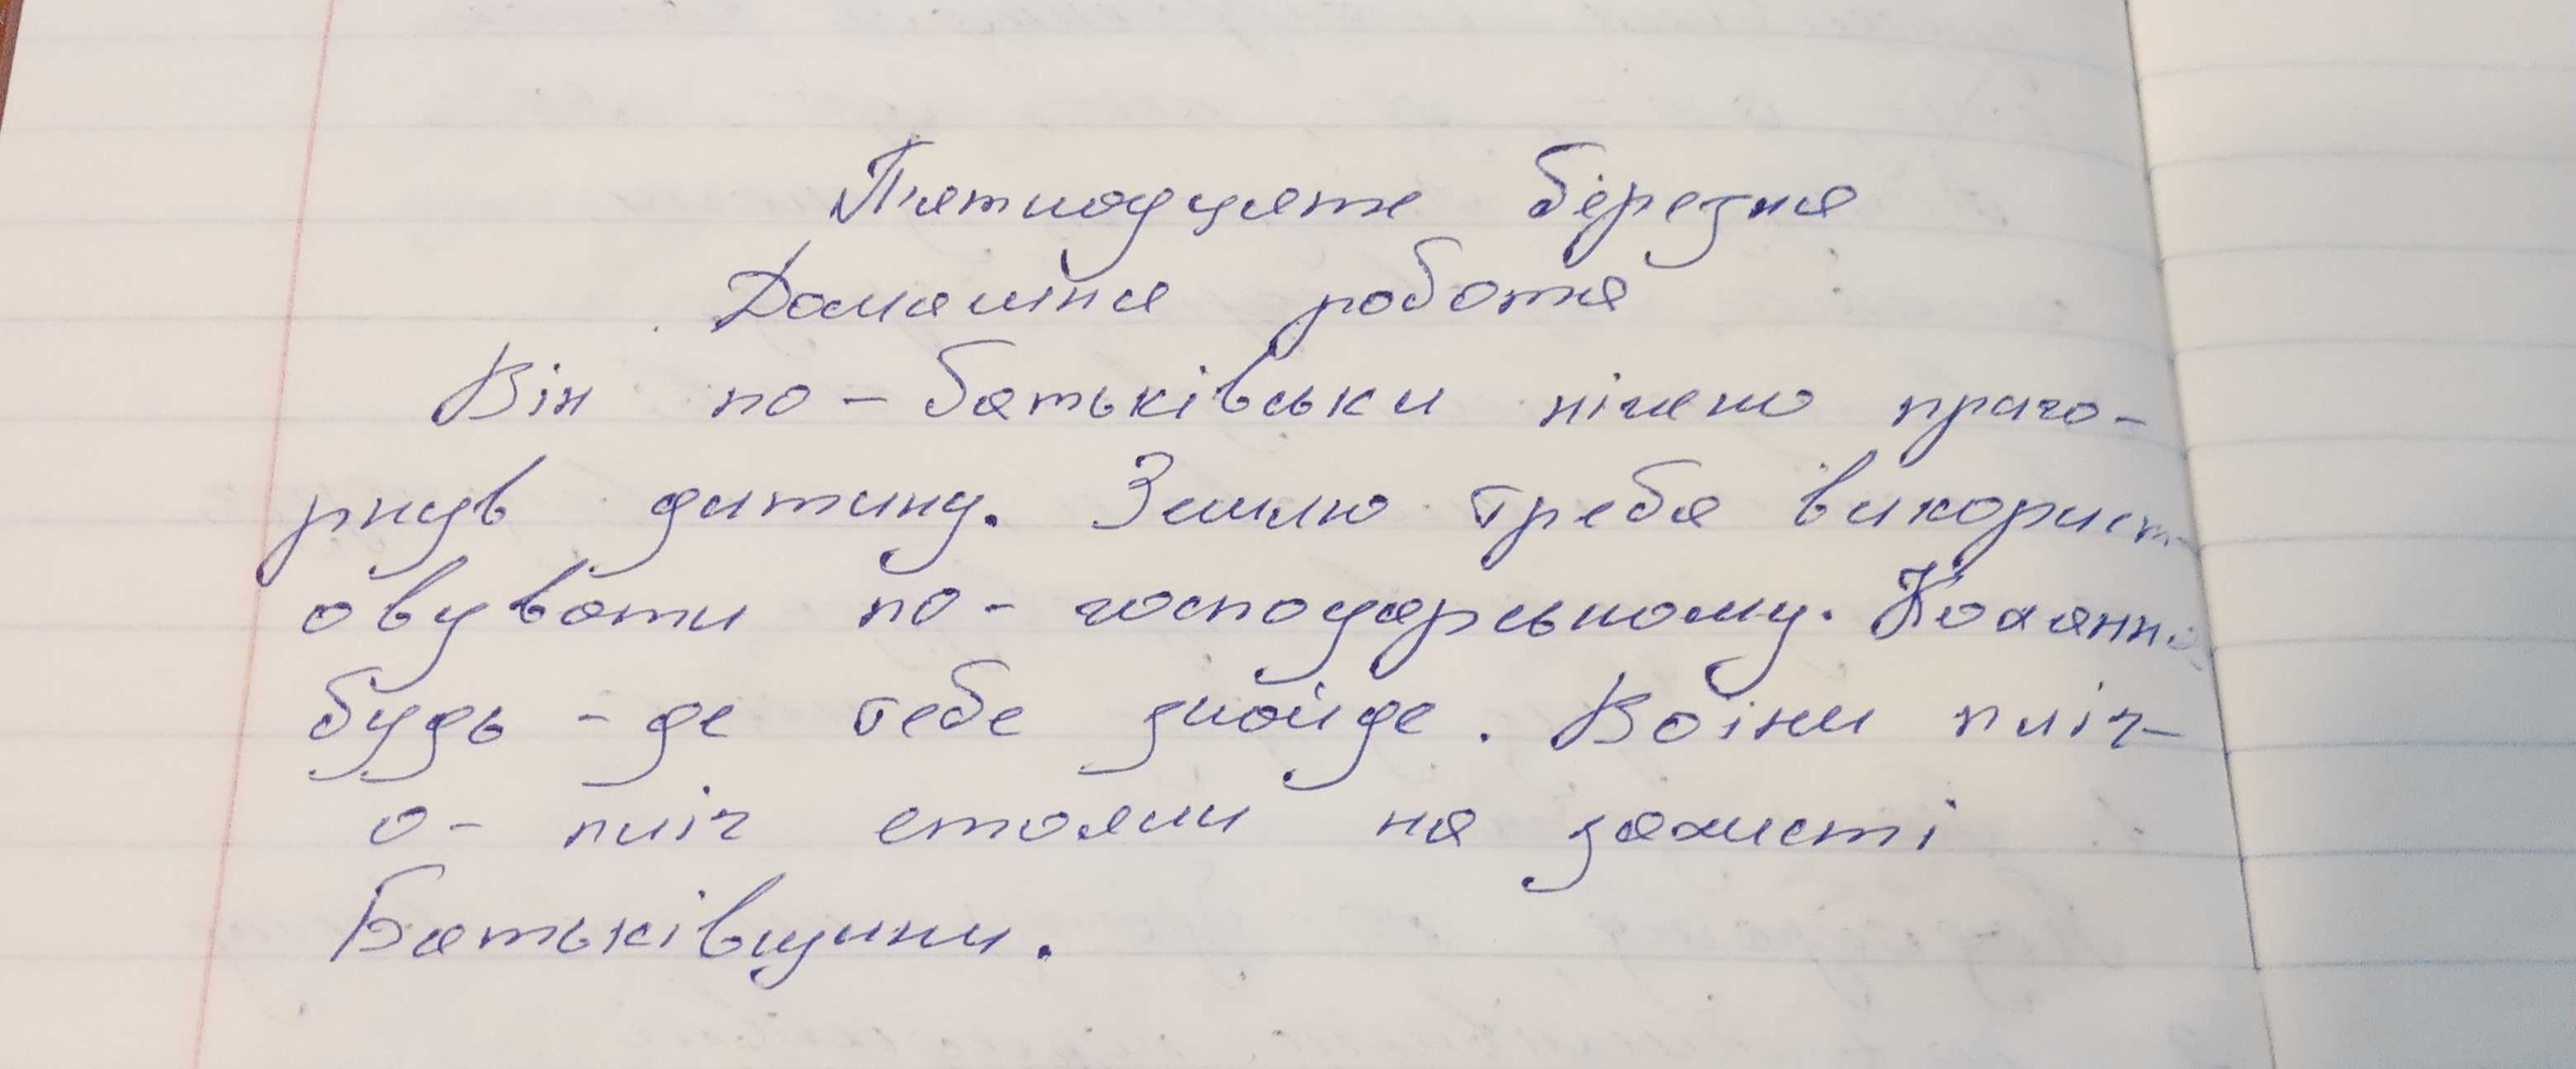 П'ятнадцяте березня
Домашня робота
Він по-батьківськи ніжно приго-
рнув дитину. Землю треба використ-
овувати по-господарському. Кохання
будь-де тебе знайде. Воїни пліч-
о-пліч стояли на захисті
Батьківщини.